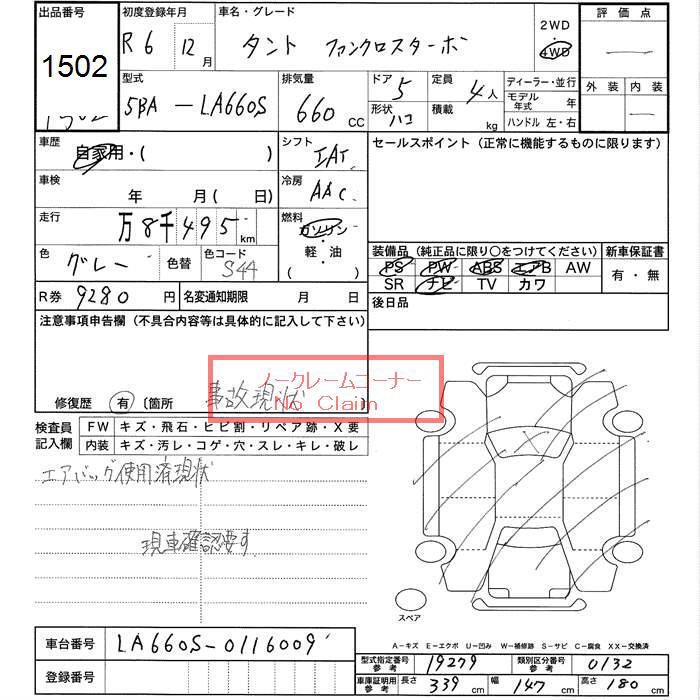 出品番号 初度登録年月 車名・グレード 2WD 4WD 評価点
1502 R6 12月 タント ファンクロスターボ
型式 排気量 ドア 5 定員 4人 ディーラー・並行 外装 内装
5BA-LA660S 660cc 形状 ハコ 積載 kg モデル年式 年
ハンドル 左・右
車歴 自家用・( ) シフト IAT セールスポイント (正常に機能するものに限ります)
車検 年 月 ( 日) 冷房 AAC
走行 万8千495km 燃料 ガソリン・軽油 ( )
色 グレー 色替 色コード S44 装備品 (純正品に限り○をつけてください) 新車保証書
PS PW ABS エアB AW 有・無
SR ナビ TV カワ
R券 9280円 名変通知期限 月 日 後日品
注意事項申告欄 (不具合内容等は具体的に記入して下さい)
ノークレームコーナー
No Claim
修復歴 有 〔箇所 事故現状
検査員記入欄 FW キズ・飛石・ヒビ割・リペア跡・X要
内装 キズ・汚レ・コゲ・穴・スレ・キレ・破レ
エアバッグ使用済現状
現車確認要す
X
スペア
A-キズ E-エクボ U-凹み W-補修跡 S-サビ C-腐食 XX-交換済
車台番号 LA660S-0116009
型式指定番号 参考 19279 類別区分番号 参考 0132
登録番号 車庫証明用 参考 長さ 339cm 幅 147cm 高さ 180cm